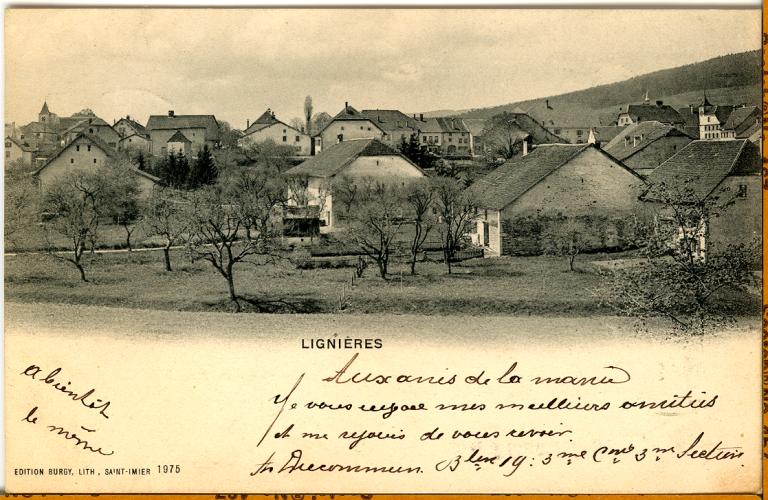 LIGNIÈRES
Aux amis de la mairie
Je vous envoie mes meilleurs amitiés
et me rejouis de vous revoir.
Bten 19: 3me Cnie 3me Section.
A bientôt
le même
EDITION BURGY, LITH, SAINT-IMIER 1975